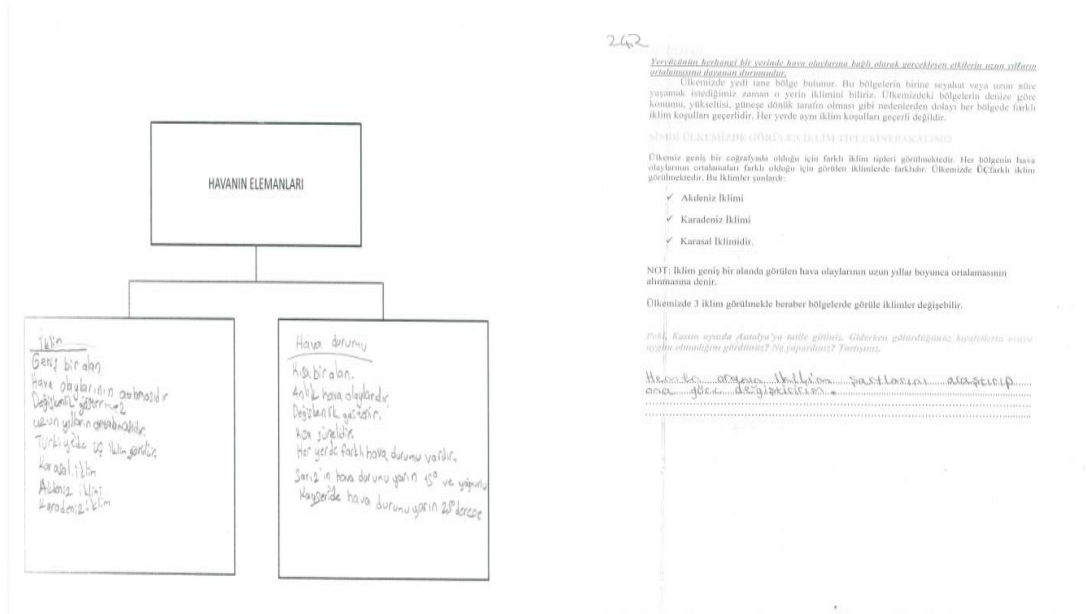 HAVANIN ELEMANLARI
İklim
Geniş bir alan
Hava olaylarının ortalmasıdır
Değişkenlik göstermez
uzun yılların ortalmasıdır.
Türkiyede üç iklim görülür.
Karasal iklim
Akdeniz iklimi
Karadeniz iklim
Hava durumu
Kısa bir alan.
Anlık hava olaylarıdır
Değişkenlik gösterir.
Kısa sürelidir.
Her yerde farklı hava durumu vardır.
Sarız'ın hava durumu yarın 15° ve yağmurlu
Kayseride hava durumu yarın 25° derece
242
Yeryüzünün herhangi bir yerinde hava olaylarına bağlı olarak gerçekleşen etkilerin uzun yılların
ortalamasına dayanan durumudur.
Ülkemizde yedi tane bölge bulunur. Bu bölgelerin birine seyahat veya uzun süre
yaşamak istediğimiz zaman o yerin iklimini biliriz. Ülkemizdeki bölgelerin denize göre
konumu, yükseltisi, güneşe dönük tarafın olması gibi nedenlerden dolayı her bölgede farklı
iklim koşulları geçerlidir. Her yerde aynı iklim koşulları geçerli değildir.
ŞİMDİ ÜLKEMİZDE GÖRÜLEN İKLİM TİPLERİNE BAKALIM
Ülkemiz geniş bir coğrafyada olduğu için farklı iklim tipleri görülmektedir. Her bölgenin hava
olaylarının ortalamaları farklı olduğu için görülen iklimlerde farklıdır. Ülkemizde ÜÇfarklı iklim
görülmektedir. Bu İklimler şunlardır:
✓ Akdeniz İklimi
✓ Karadeniz İklimi
✓ Karasal İklimidir.
NOT: İklim geniş bir alanda görülen hava olaylarının uzun yıllar boyunca ortalamasının
alınmasına denir.
Ülkemizde 3 iklim görülmekle beraber bölgelerde görüle iklimler değişebilir.
Peki, Kasım ayında Antalya'ya tatile gittiniz. Giderken götürdüğünüz kıyafetlerin oraya
uygun olmadığını gördünüz? Ne yapardınız? Tartışınız.
Hemen oranın şartlarını araştırıp
ona göre değiştiririm.